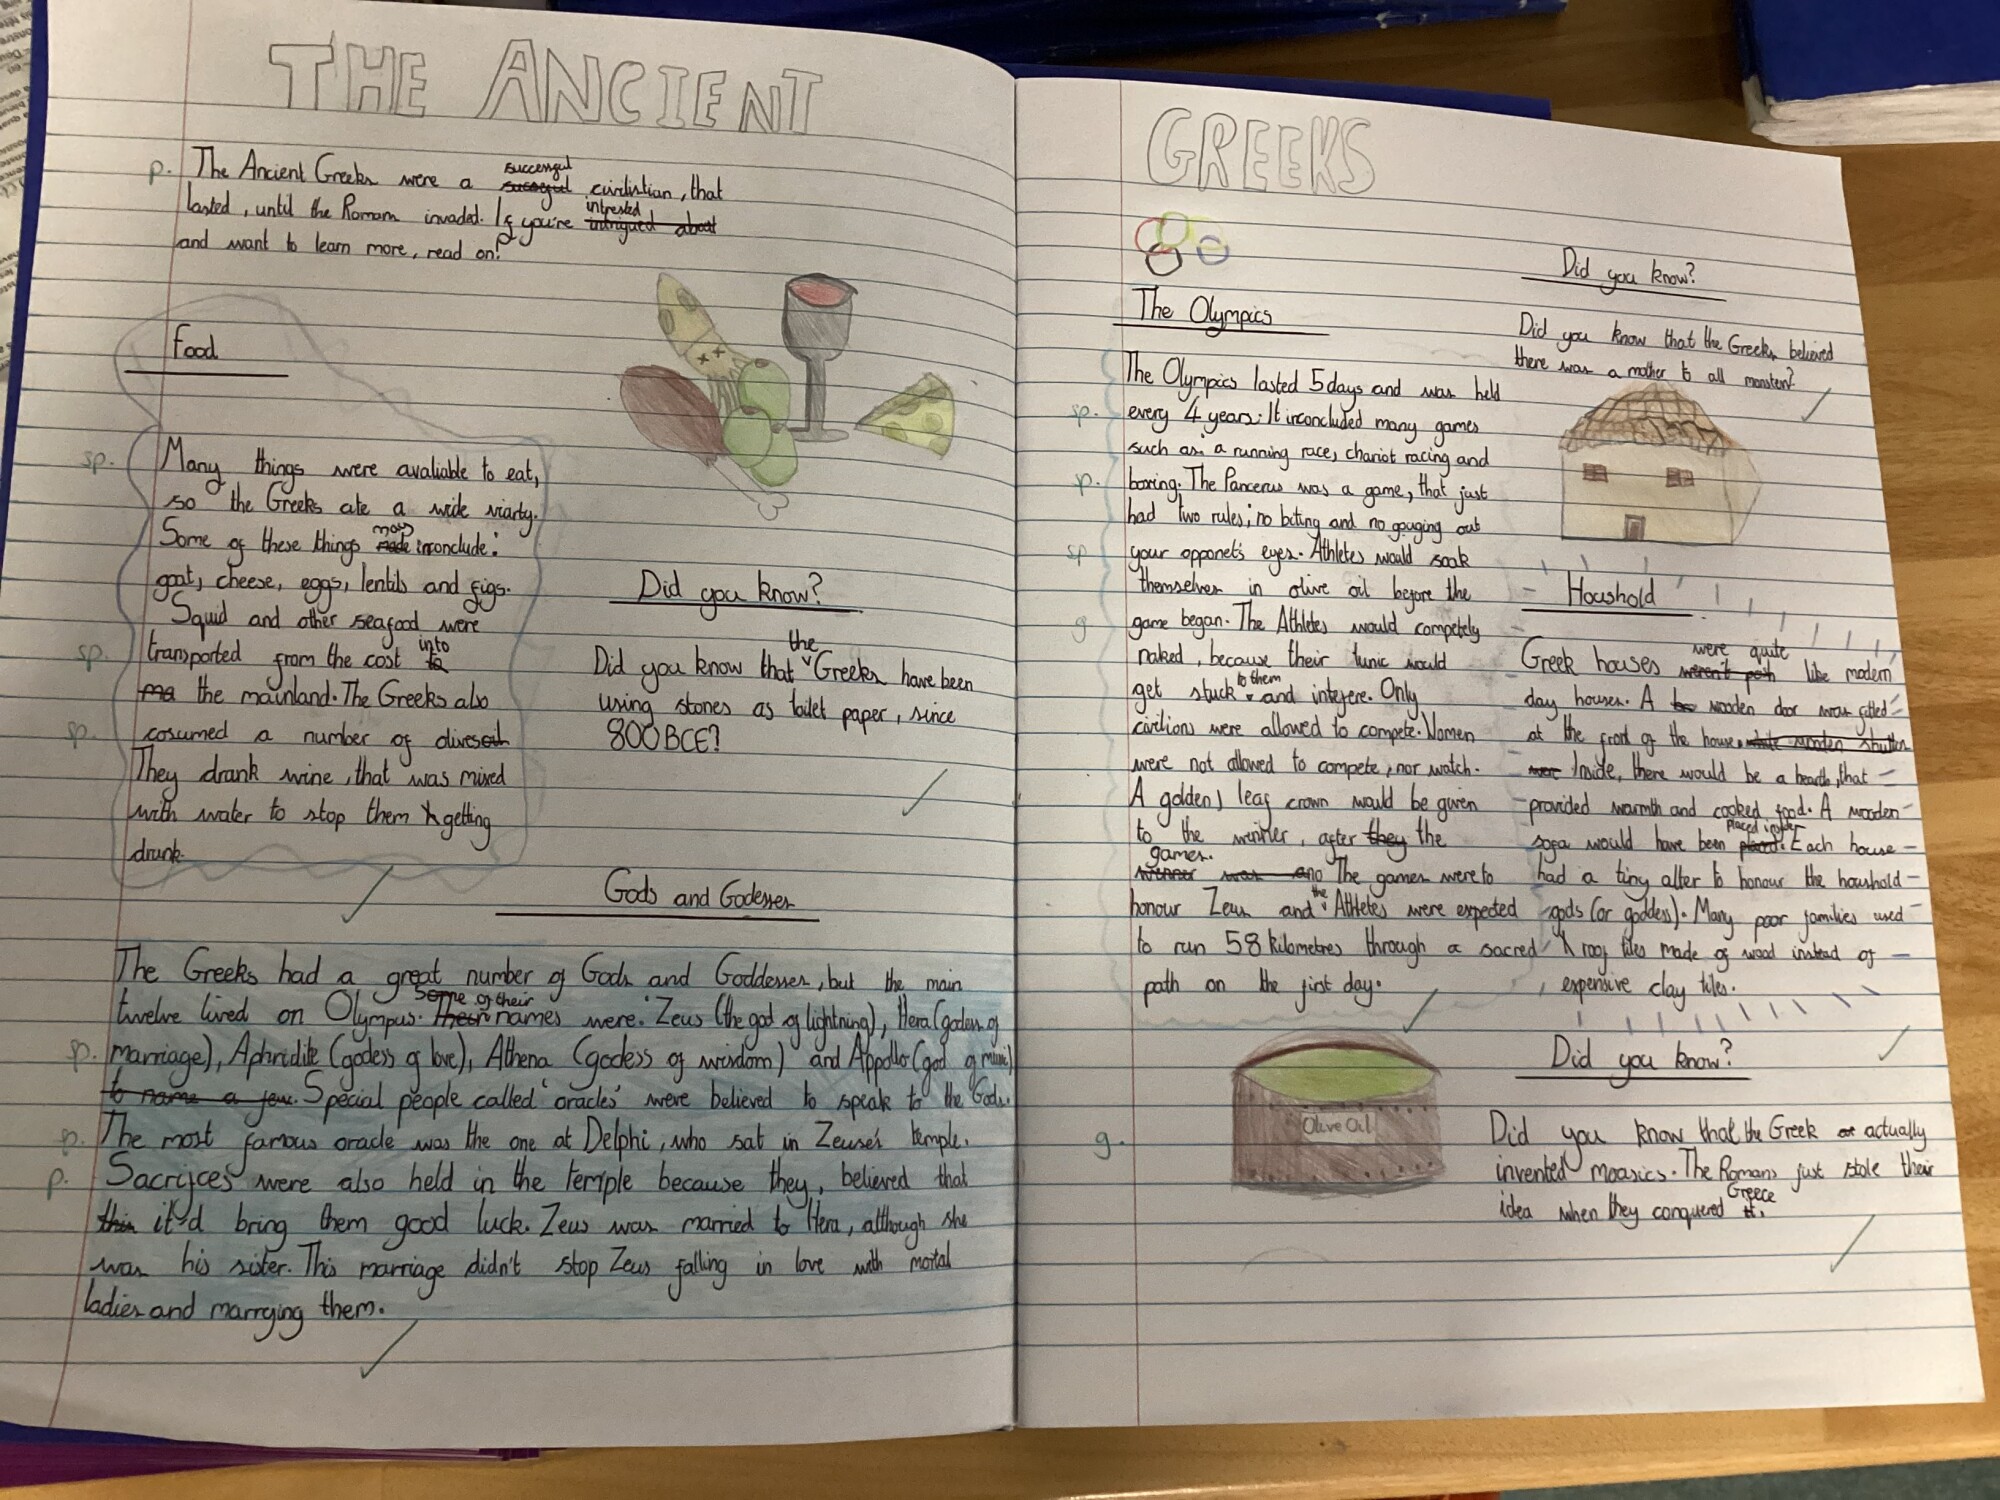 THE ANCIENT
p. The Ancient Greeks were a successful sucsegul civilistian, that
lasted, until the Romans invaded. If you're intrested intrigued about
and want to learn more, read on!
Food
sp. Many things were avaliable to eat,
so the Greeks ate a wide viarty.
Some of these things may made inconclude:
goat, cheese, eggs, lentils and figs.
Squid and other seafood were
sp. transported from the cost into to
ma the mainland. The Greeks also
sp. cosumed a number of olives
They drank wine, that was mixed
with water to stop them getting
drunk.
Did you know?
Did you know that the Greeks have been
using stones as toilet paper, since
800 BCE?
Gods and Godesses
The Greeks had a great number of Gods and Goddesses, but the main
twelve lived on Olympus. Some of their Their names were: Zeus (the god of lightning), Hera (godess of
sp. marriage), Aphridite (godess of love), Athena (godess of wisdom) and Appollo (god of music)
to name a few. Special people called 'oracles' were believed to speak to the Gods.
p. The most famous oracle was the one at Delphi, who sat in Zeuse's temple.
p. Sacrifces were also held in the temple because they, believed that
this it'd bring them good luck. Zeus was married to Hera, although she
was his sister. This marriage didn't stop Zeus falling in love with mortal
ladies and marrying them.
GREEKS
The Olympics
The Olympics lasted 5 days and was held
sp. every 4 years. It inconcluded many games
such as: a running race, chariot racing and
p. boxing. The Pancerus was a game, that just
had two rules; no biting and no gouging out
sp your opponet's eyes. Athletes would soak
themselves in olive oil before the
g game began. The Athletes would competely
naked, because their tunic would
get stuck to them and intefere. Only
civilions were allowed to compete. Women
were not allowed to compete, nor watch.
A golden, leaf crown would be given
to the winner, after they the
games. winner was The games were to
honour Zeus and the Athletes were expected
to run 58 kilometres through a sacred
path on the first day.
Olive Oil
g.
Did you know?
Did you know that the Greeks believed
there was a mother to all monsters?
Houshold
Greek houses were quite weren't like modern
day houses. A wooden door was fitted
at the front of the house. wooden shutters
were Inside, there would be a hearth, that
provided warmth and cooked food. A wooden
sofa would have been placed inside placed. Each house
had a tiny alter to honour the houshold
gods (or goddess). Many poor families used
roof tiles made of wood instead of
expensive clay tiles.
Did you know?
Did you know that the Greek actually
invented moasics. The Romans just stole their
idea when they conquered Greece it.